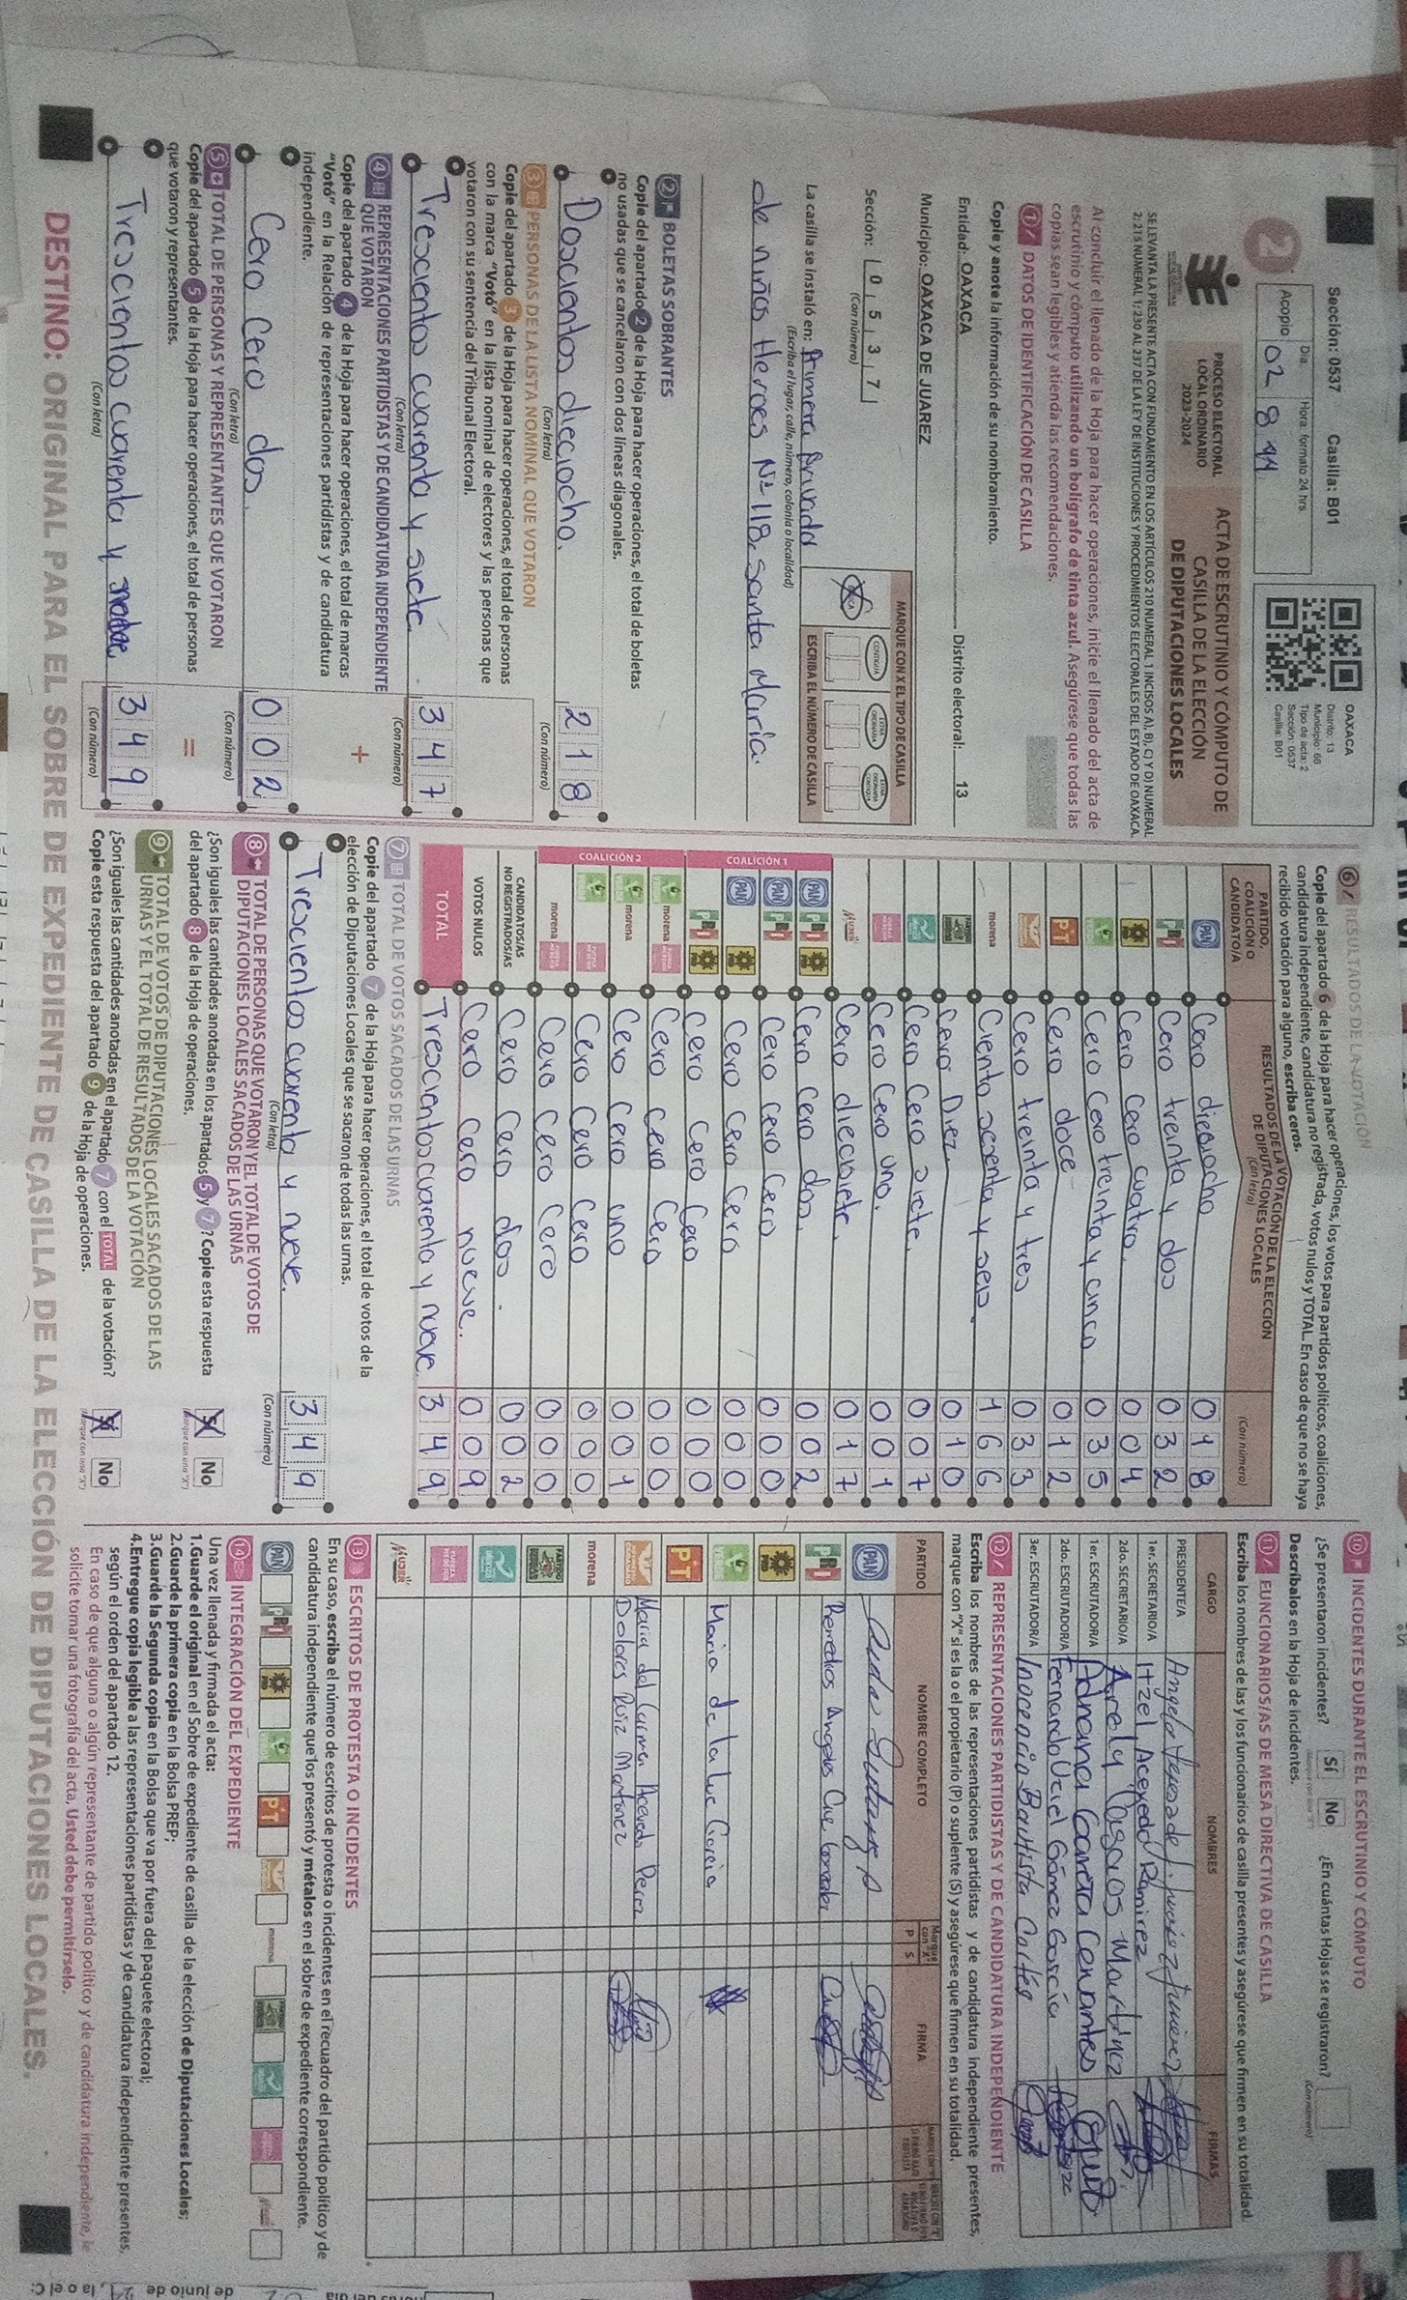 Sección: 0537 Casilla: B01
Día Hora: formato 24 hrs
Acopio 02 8 44
OAXACA
Distrito: 13
Municipio: 66
Tipo de acta: 2
Sección: 0537
Casilla: B01
2
PROCESO ELECTORAL
LOCAL ORDINARIO
2023-2024
ACTA DE ESCRUTINIO Y CÓMPUTO DE
CASILLA DE LA ELECCIÓN
DE DIPUTACIONES LOCALES
SE LEVANTA LA PRESENTE ACTA CON FUNDAMENTO EN LOS ARTÍCULOS 210 NUMERAL 1 INCISOS A), B), C) Y D) NUMERAL
2; 215 NUMERAL 1; 230 AL 237 DE LA LEY DE INSTITUCIONES Y PROCEDIMIENTOS ELECTORALES DEL ESTADO DE OAXACA.
Al concluir el llenado de la Hoja para hacer operaciones, inicie el llenado del acta de
escrutinio y cómputo utilizando un bolígrafo de tinta azul. Asegúrese que todas las
copias sean legibles y atienda las recomendaciones.
1 DATOS DE IDENTIFICACIÓN DE CASILLA
Copie y anote la información de su nombramiento.
Entidad: OAXACA Distrito electoral: 13
Municipio: OAXACA DE JUAREZ
Sección: 0 5 3 7
(Con número)
MARQUE CON X EL TIPO DE CASILLA
ESCRIBA EL NÚMERO DE CASILLA
La casilla se instaló en: Primera privada
(Escriba el lugar, calle, número, colonia o localidad)
de niños Heroes Nº 118, santa María.
2 BOLETAS SOBRANTES
Copie del apartado 2 de la Hoja para hacer operaciones, el total de boletas
no usadas que se cancelaron con dos líneas diagonales.
Doscientos dieciocho. 2 1 8
(Con letra) (Con número)
3 PERSONAS DE LA LISTA NOMINAL QUE VOTARON
Copie del apartado 3 de la Hoja para hacer operaciones, el total de personas
con la marca "Votó" en la lista nominal de electores y las personas que
votaron con su sentencia del Tribunal Electoral.
Trescientos cuarenta y siete. 3 4 7
(Con letra) (Con número)
4 REPRESENTACIONES PARTIDISTAS Y DE CANDIDATURA INDEPENDIENTE
QUE VOTARON
Copie del apartado 4 de la Hoja para hacer operaciones, el total de marcas
"Votó" en la Relación de representaciones partidistas y de candidatura
independiente.
+
Cero Cero dos. 0 0 2
(Con letra) (Con número)
5 TOTAL DE PERSONAS Y REPRESENTANTES QUE VOTARON
Copie del apartado 5 de la Hoja para hacer operaciones, el total de personas
que votaron y representantes.
=
Trescientos cuarenta y nueve 3 4 9
(Con letra) (Con número)
6 RESULTADOS DE LA VOTACIÓN
Copie del apartado 6 de la Hoja para hacer operaciones, los votos para partidos políticos, coaliciones,
candidatura independiente, candidatura no registrada, votos nulos y TOTAL. En caso de que no se haya
recibido votación para alguno, escriba ceros.
PARTIDO,
COALICIÓN O
CANDIDATO/A
RESULTADOS DE LA VOTACIÓN DE LA ELECCIÓN
DE DIPUTACIONES LOCALES
(Con letra)
(Con número)
PAN Cero dieciocho 0 1 8
PRI Cero treinta y dos 0 3 2
PRD Cero Cero cuatro. 0 0 4
Cero Cero treinta y cinco 0 3 5
PT Cero doce 0 1 2
Cero treinta y tres 0 3 3
morena Ciento sesenta y seis. 1 6 6
Cero Diez. 0 1 0
Cero Cero siete. 0 0 7
Cero Cero uno. 0 0 1
MUJER Cero diecisiete. 0 1 7
COALICIÓN 1
PAN PRI PRD Cero Cero dos. 0 0 2
PAN PRI Cero Cero Cero 0 0 0
PAN PRD Cero Cero Cero 0 0 0
PRI PRD Cero Cero Cero 0 0 0
COALICIÓN 2
morena Cero Cero Cero 0 0 0
morena Cero Cero uno 0 0 1
Cero Cero Cero 0 0 0
morena Cero Cero Cero 0 0 0
CANDIDATOS/AS
NO REGISTRADOS/AS Cero Cero dos. 0 0 2
VOTOS NULOS Cero Cero nueve. 0 0 9
TOTAL Trescientos cuarenta y nueve. 3 4 9
7 TOTAL DE VOTOS SACADOS DE LAS URNAS
Copie del apartado 7 de la Hoja para hacer operaciones, el total de votos de la
elección de Diputaciones Locales que se sacaron de todas las urnas.
Trescientos cuarenta y nueve. 3 4 9
(Con letra) (Con número)
8 TOTAL DE PERSONAS QUE VOTARON Y EL TOTAL DE VOTOS DE
DIPUTACIONES LOCALES SACADOS DE LAS URNAS
¿Son iguales las cantidades anotadas en los apartados 5 y 7? Copie esta respuesta
del apartado 8 de la Hoja de operaciones.
Sí No
9 TOTAL DE VOTOS DE DIPUTACIONES LOCALES SACADOS DE LAS
URNAS Y EL TOTAL DE RESULTADOS DE LA VOTACIÓN
¿Son iguales las cantidades anotadas en el apartado 7 con el TOTAL de la votación?
Copie esta respuesta del apartado 9 de la Hoja de operaciones.
Sí No
10 INCIDENTES DURANTE EL ESCRUTINIO Y CÓMPUTO
¿Se presentaron incidentes? Sí No ¿En cuántas Hojas se registraron?
(Con número)
Descríbalos en la Hoja de incidentes.
11 FUNCIONARIOS/AS DE MESA DIRECTIVA DE CASILLA
Escriba los nombres de las y los funcionarios de casilla presentes y asegúrese que firmen en su totalidad.
CARGO NOMBRES FIRMAS
PRESIDENTE/A Angela Teresa de J. Juarez Jimenez
1er. SECRETARIO/A Itzel Acevedo Ramirez
2do. SECRETARIO/A Arely Martinez
1er. ESCRUTADOR/A Adriana Garcia Cervantes
2do. ESCRUTADOR/A Fernando Uziel Gómez García
3er. ESCRUTADOR/A Inocencia Bautista Cortés
12 REPRESENTACIONES PARTIDISTAS Y DE CANDIDATURA INDEPENDIENTE
Escriba los nombres de las representaciones partidistas y de candidatura independiente presentes,
marque con "X" si es la o el propietario (P) o suplente (S) y asegúrese que firmen en su totalidad.
PARTIDO NOMBRE COMPLETO Marque con "X" P S FIRMA
PAN
PRI Remedios Angeles Cue
PRD
Maria de la Luz Garcia
PT
Maria del Carmen Acevedo Perez
Dolores Ruiz Martinez
morena
MUJER
13 ESCRITOS DE PROTESTA O INCIDENTES
En su caso, escriba el número de escritos de protesta o incidentes en el recuadro del partido político y de
candidatura independiente que los presentó y métalos en el sobre de expediente correspondiente.
PAN PRI PRD PT morena
14 INTEGRACIÓN DEL EXPEDIENTE
Una vez llenada y firmada el acta:
1.Guarde el original en el Sobre de expediente de casilla de la elección de Diputaciones Locales;
2.Guarde la primera copia en la Bolsa PREP;
3.Guarde la Segunda copia en la Bolsa que va por fuera del paquete electoral;
4.Entregue copia legible a las representaciones partidistas y de candidatura independiente presentes,
según el orden del apartado 12.
En caso de que alguna o algún representante de partido político y de candidatura independiente, le
solicite tomar una fotografía del acta, Usted debe permitírselo.
DESTINO: ORIGINAL PARA EL SOBRE DE EXPEDIENTE DE CASILLA DE LA ELECCIÓN DE DIPUTACIONES LOCALES.
de junio de